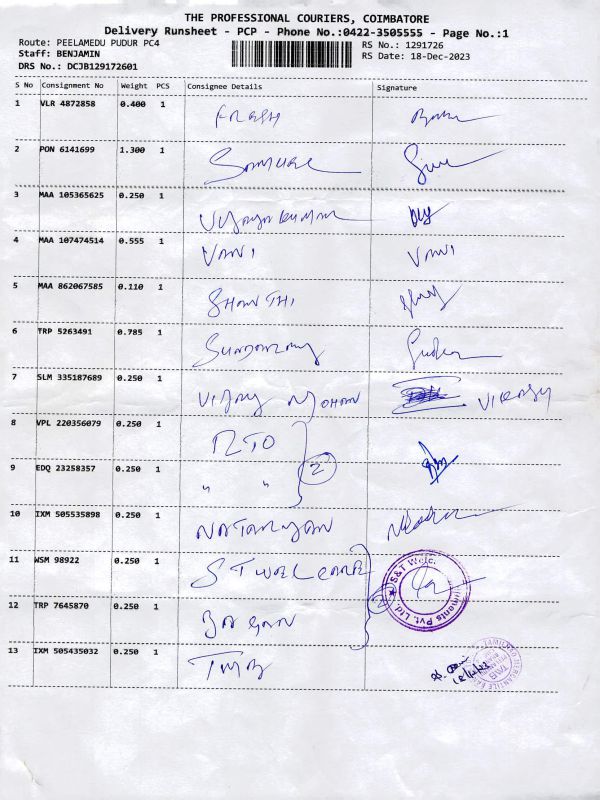 THE PROFESSIONAL COURIERS, COIMBATORE
Delivery Runsheet - PCP - Phone No.:0422-3505555 - Page No.:1
Route: PEELAMEDU PUDUR PC4
RS No.: 1291726
Staff: BENJAMIN
RS Date: 18-Dec-2023
DRS No.: DCJB129172601
S No Consignment No Weight PCS Consignee Details Signature
1 VLR 4872858 0.400 1 FRESH
2 PON 6141699 1.300 1
3 MAA 105365625 0.250 1 VIJAYAKUMAR
4 MAA 107474514 0.555 1 VANI VANI
5 MAA 862067585 0.110 1 SHANTHI
6 TRP 5263491 0.785 1
7 SLM 335187689 0.250 1 VIJAY MOHAN
8 VPL 220356079 0.250 1 RTO
9 EDQ 23258357 0.250 1 " " 2
10 IXM 505535898 0.250 1 NATARAJAN
11 WSM 98922 0.250 1 ST WELCARE
S&T Welc. uments Pvt. Ltd.
12 TRP 7645870 0.250 1 2
13 IXM 505435032 0.250 1 TMB
TAMILNAD MERCANTILE BANK
18/12/23